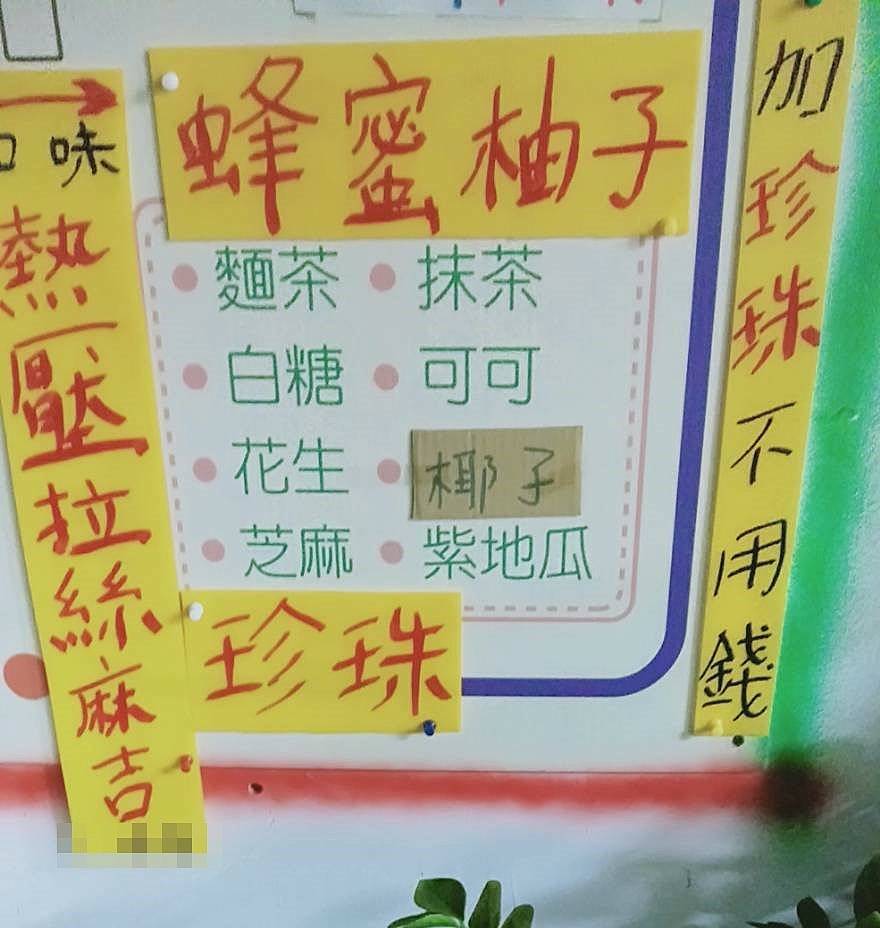 口味
熱壓拉絲麻吉
蜂蜜柚子
麵茶
抹茶
白糖
可可
花生
椰子
芝麻
紫地瓜
珍珠
加珍珠不用錢